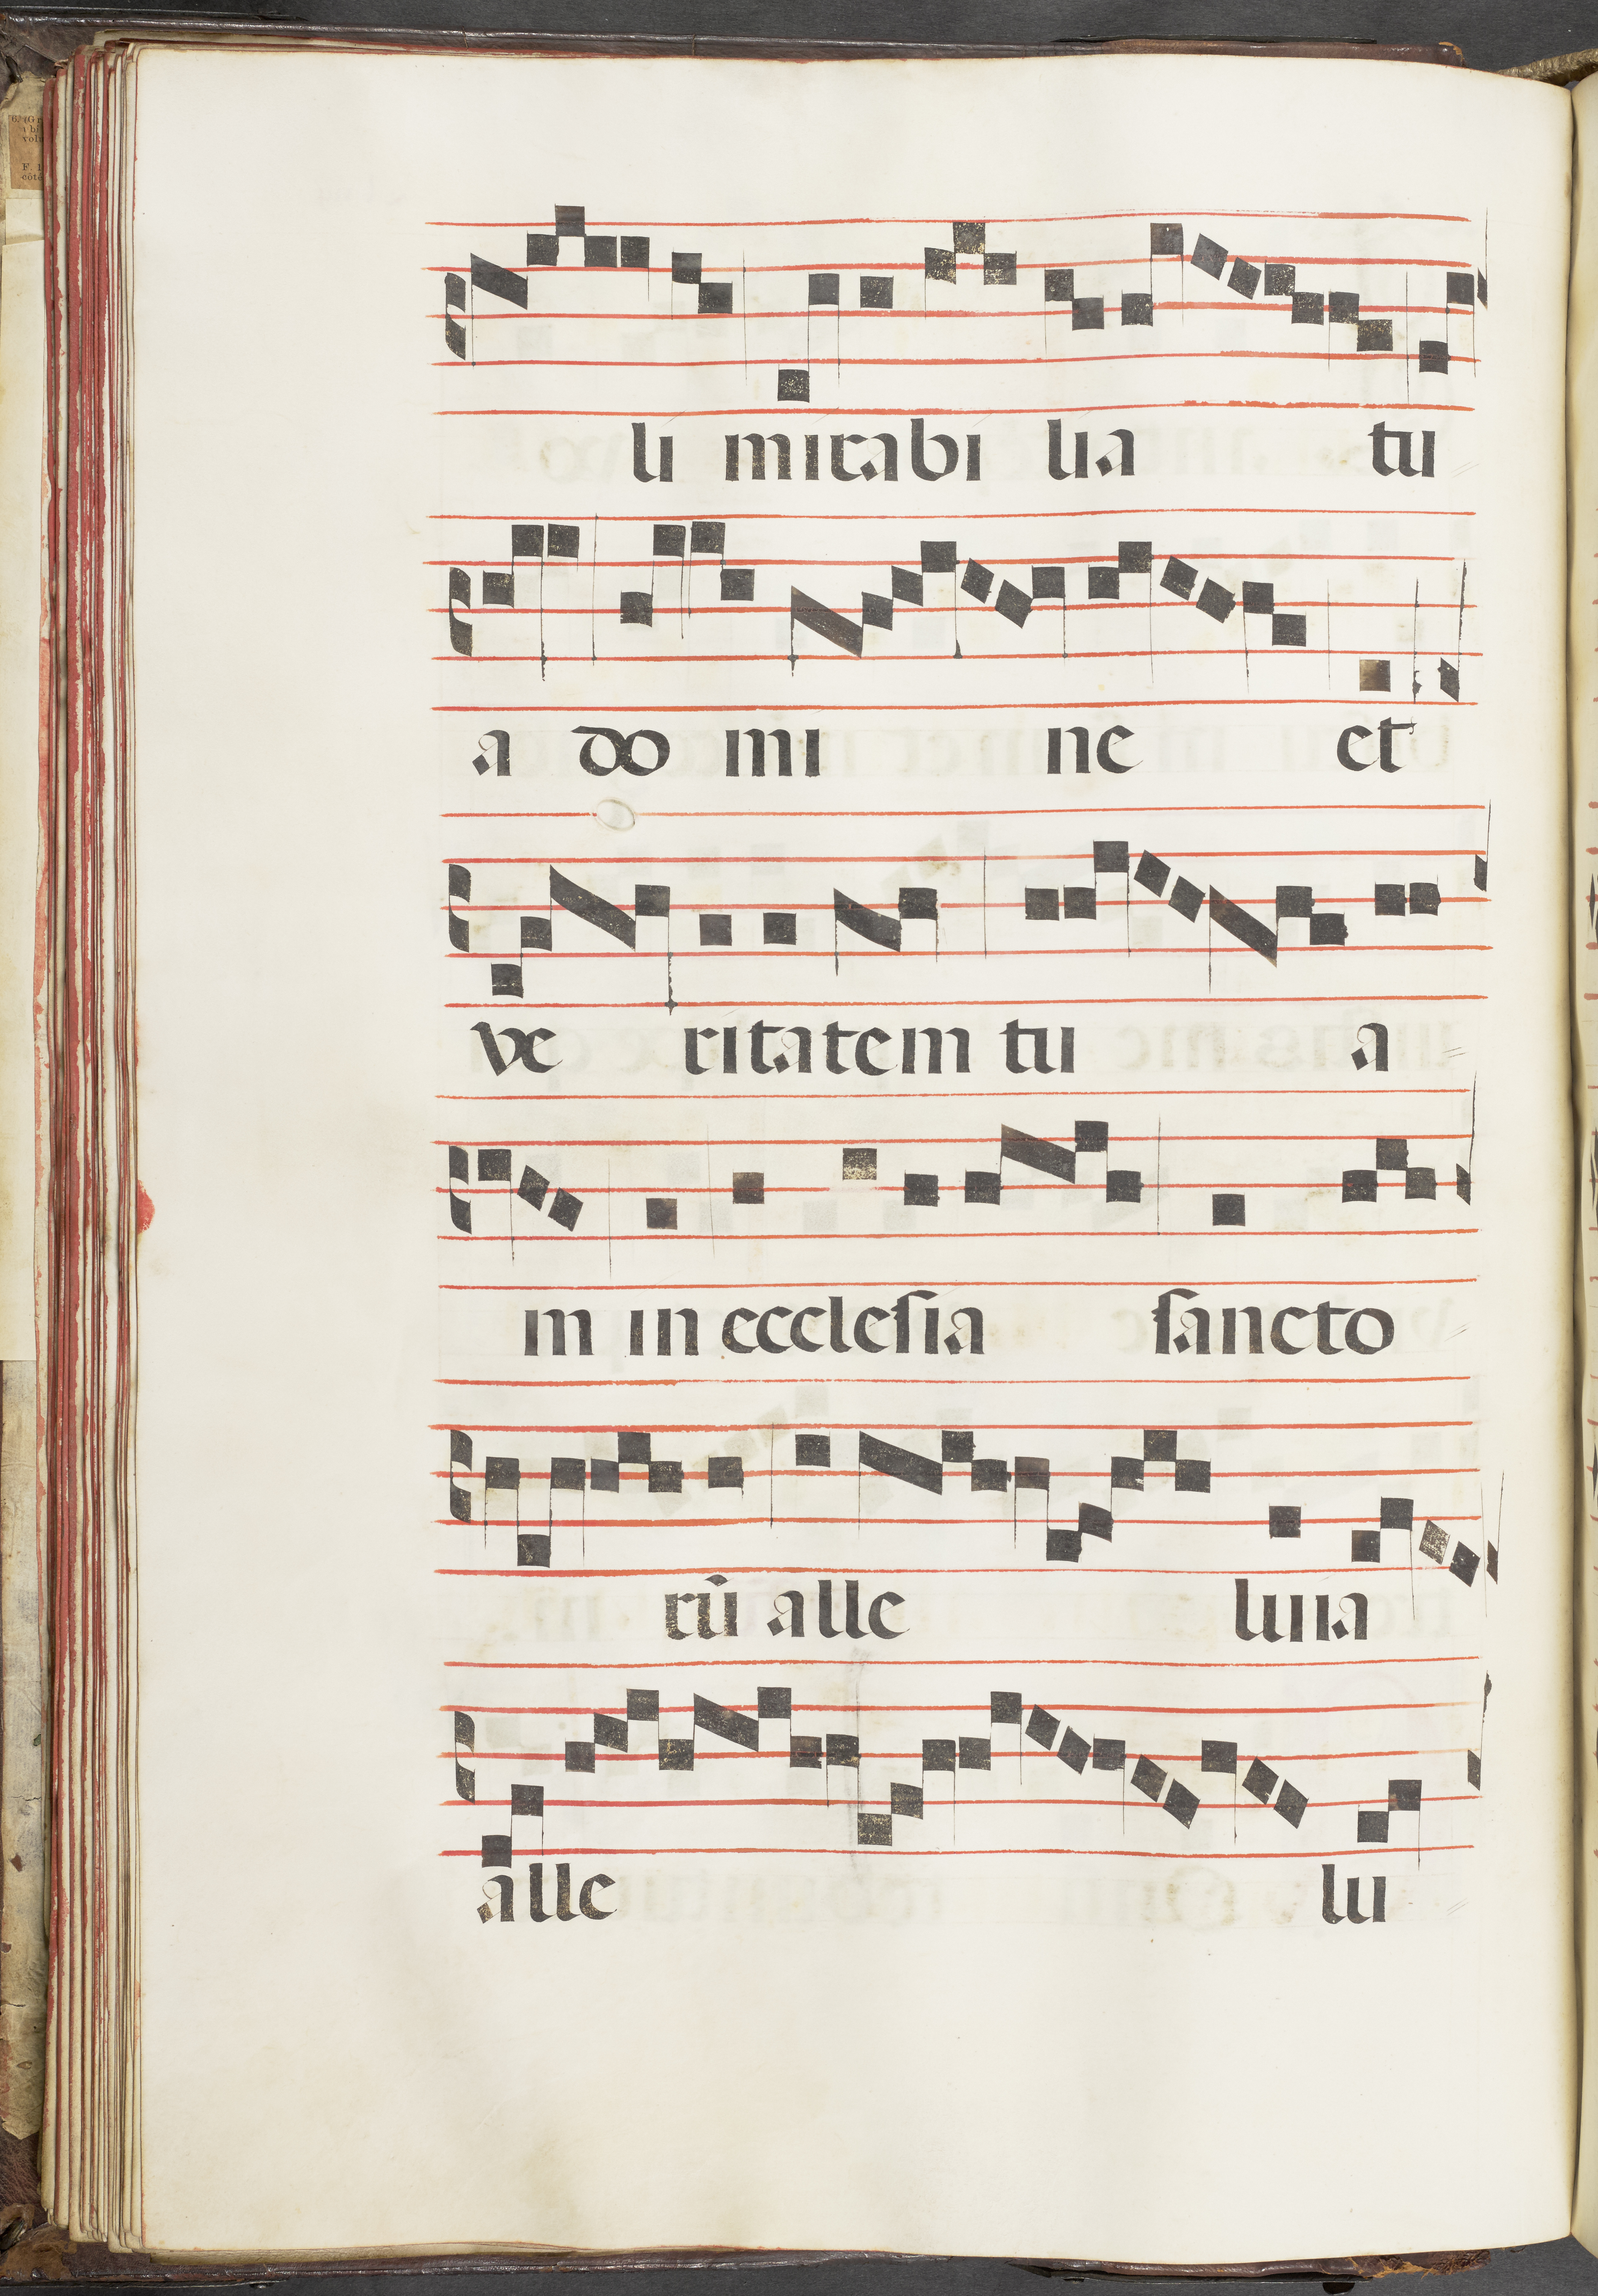 li mirabi lia tu
a do mi ne et
ve ritatem tu a
m in eccleſia ſancto
rũ alle luia
alle lu